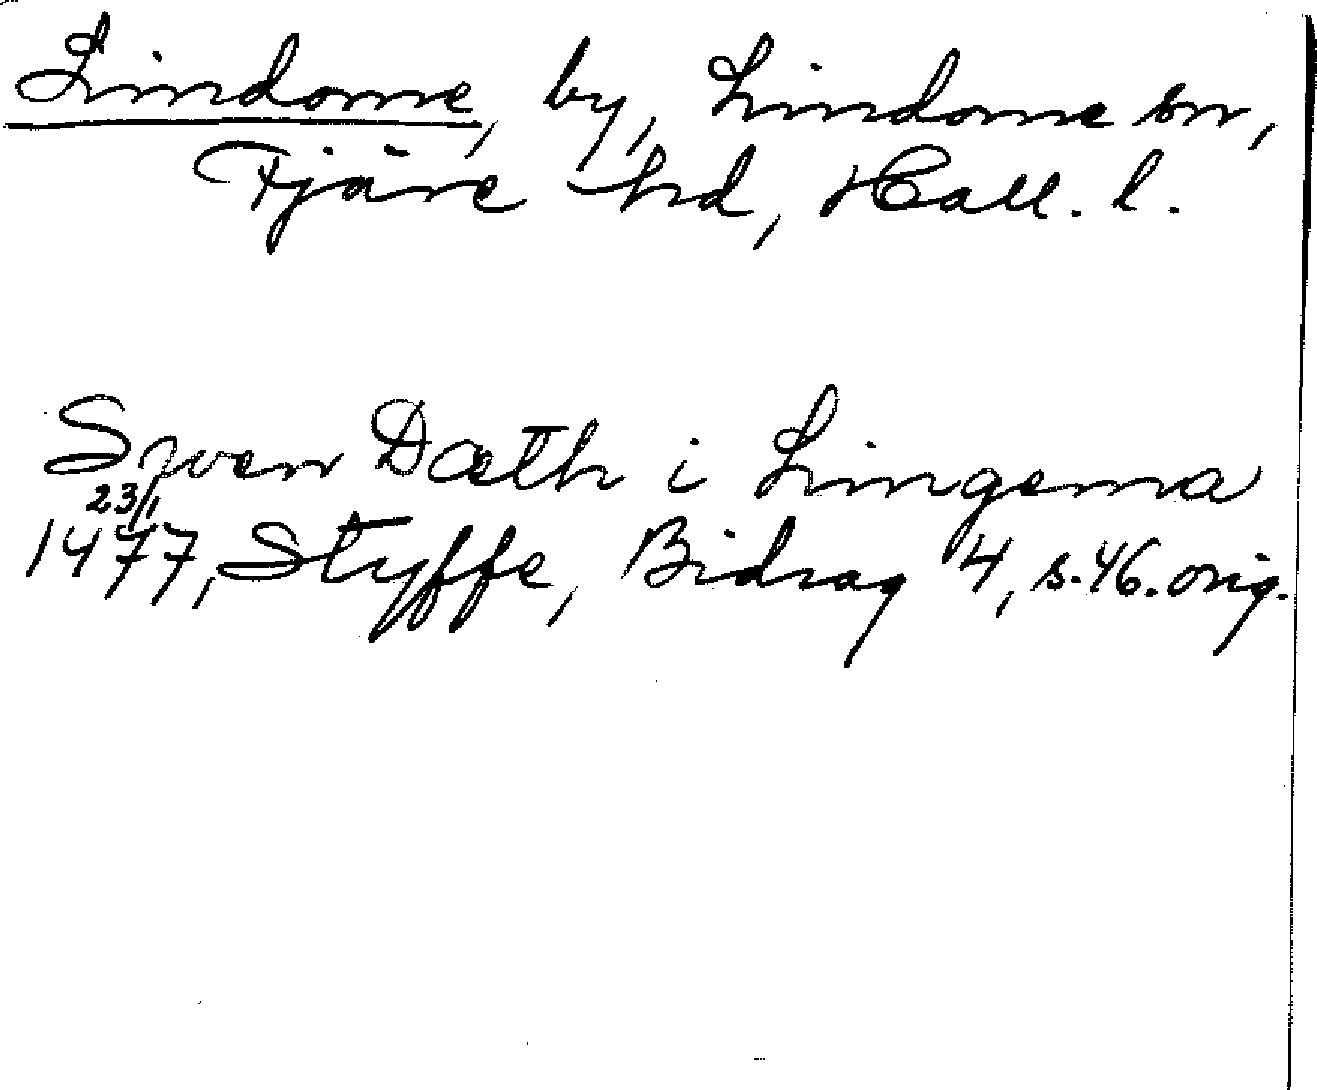 Lindome, by, Lindome sn,
Fjäre hd, Hall. l.
Swen Dæth i Lingema
23/1
1477, Styffe, Bidrag 4, s. 46. orig.